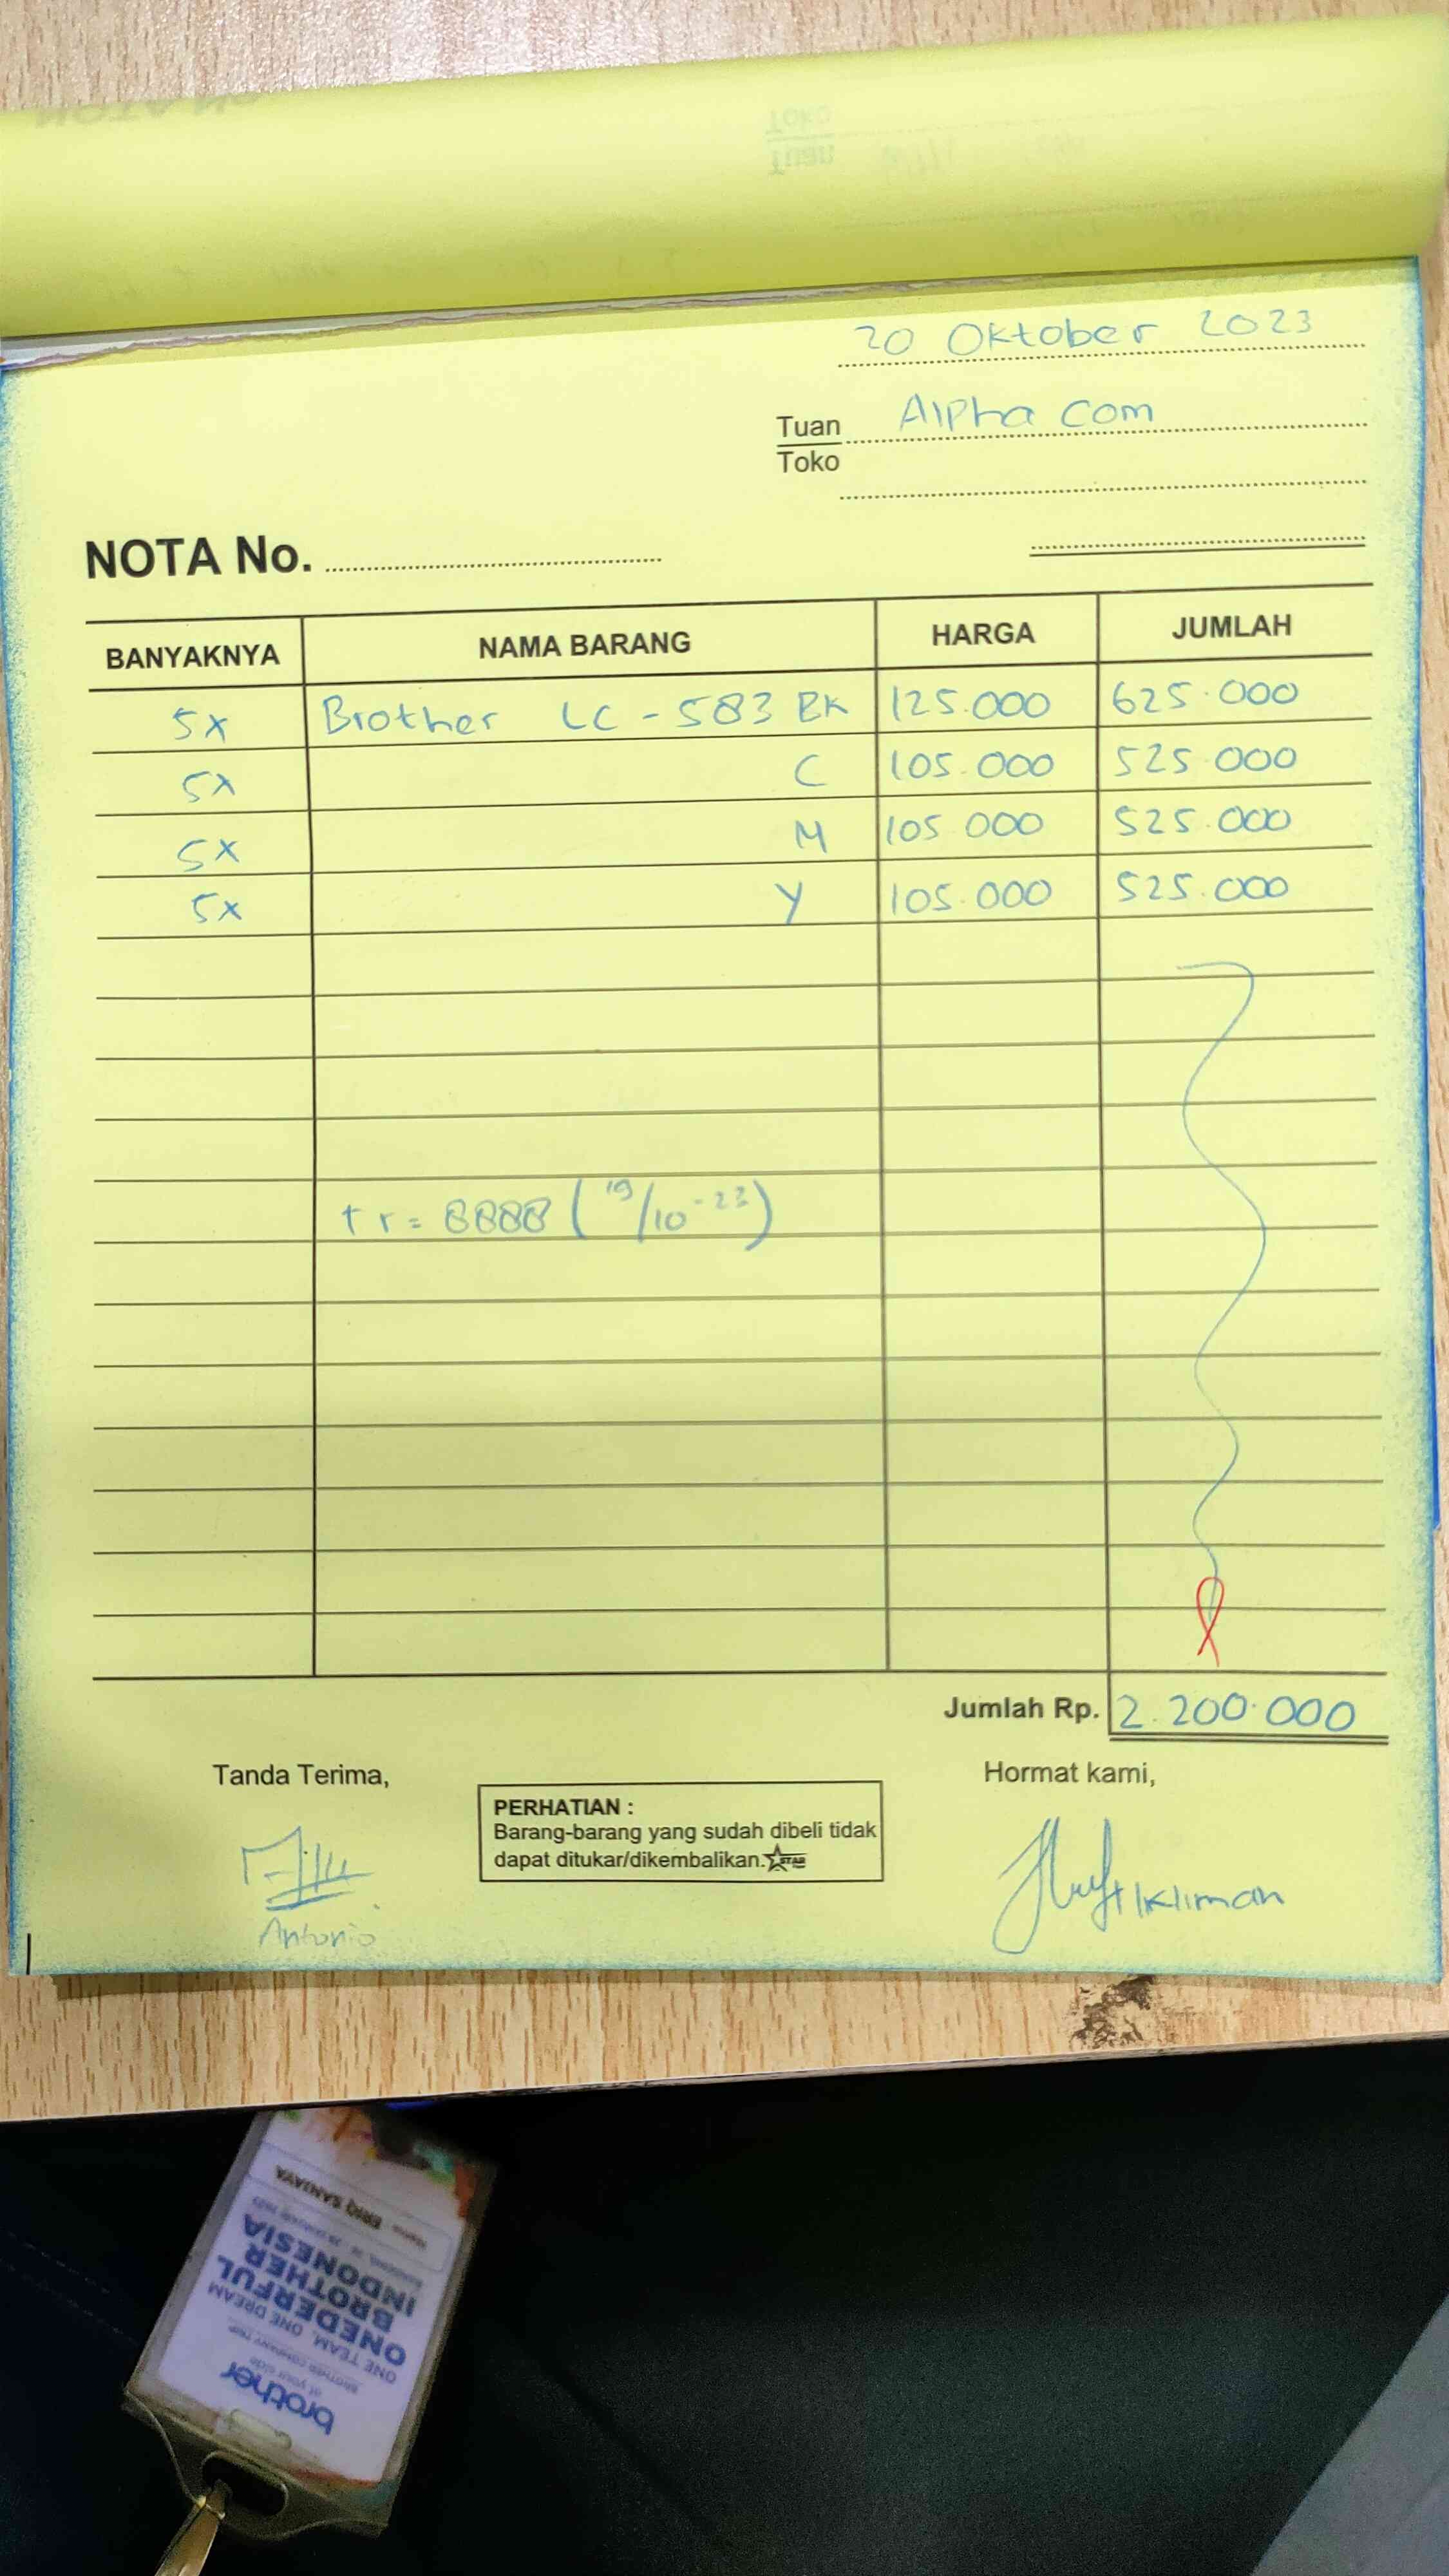 20 Oktober 2023
Tuan Alpha Com
Toko
NOTA No.
BANYAKNYA NAMA BARANG HARGA JUMLAH
5x Brother LC - 583 BK 125.000 625.000
5x C 105.000 525.000
5x M 105 000 525.000
5x Y 105.000 525.000
tr = 8888 (19/10-23)
Jumlah Rp. 2.200.000
Tanda Terima, Hormat kami,
PERHATIAN :
Barang-barang yang sudah dibeli tidak
dapat ditukar/dikembalikan. STAR
Antonio
brother
at your side
BROTHER COMPANY TRIP
ONE TEAM, ONE DREAM
ONEDERFUL
BROTHER
INDONESIA
ERIQ SANJAYA